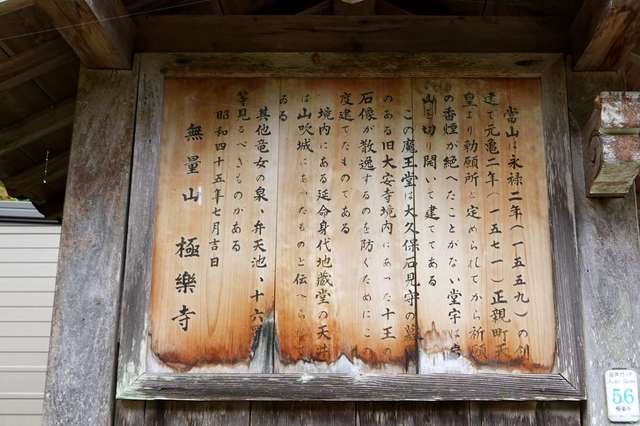 當山は永禄二年(一五五九)の創
建で元亀二年(一五七一)正親町天
皇より勅願所と定められてから祈願
の香煙が絶へたことがない堂宇は
山を切り開いて建ててある
この魔王堂は大久保石見守の墓
のある旧大安寺境内にあった十王の
石像が散逸するのを防ぐためにこの
度建てたものである
境内にある延命身代地蔵堂の天井
は山吹城にあったものと伝へら
ゐる
其他竜女の泉、弁天池、十六
等見るべきものがある
昭和四十五年七月吉日
無量山 極樂寺
56